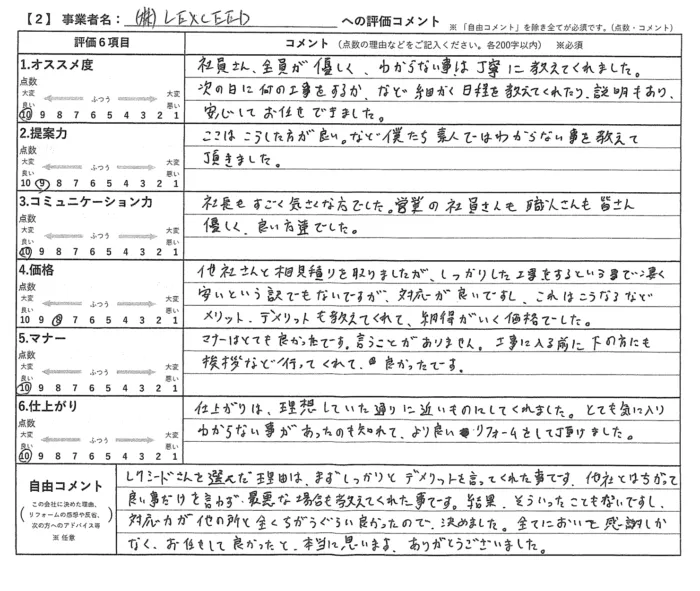 【2】事業者名：㈱LEXCEED への評価コメント ※「自由コメント」を除き全てが必須です。（点数・コメント）
評価6項目 コメント（点数の理由などをご記入ください。各200字以内） ※必須
1.オススメ度
点数
大変良い ふつう 大変悪い
10 9 8 7 6 5 4 3 2 1
社員さん、全員が優しく、わからない事は丁寧に教えてくれました。
次の日に何の工事をするか、など細かく日程を教えてくれたり、説明もあり、
安心してお任せできました。
2.提案力
点数
大変良い ふつう 大変悪い
10 9 8 7 6 5 4 3 2 1
ここはこうした方が良い。など僕たち素人ではわからない事を教えて
頂きました。
3.コミュニケーション力
点数
大変良い ふつう 大変悪い
10 9 8 7 6 5 4 3 2 1
社長もすごく気さくな方でした。営業の社員さんも職人さんも皆さん
優しく、良い方達でした。
4.価格
点数
大変良い ふつう 大変悪い
10 9 8 7 6 5 4 3 2 1
他社さんと相見積りを取りましたが、しっかりした工事をするという事で凄く
安いという訳でもないですが、対応が良いですし、これはこうなるなど
メリット、デメリットも教えてくれて、納得がいく価格でした。
5.マナー
点数
大変良い ふつう 大変悪い
10 9 8 7 6 5 4 3 2 1
マナーはとても良かったです。言うことがありません。工事に入る前に下の方にも
挨拶など行ってくれて、良かったです。
6.仕上がり
点数
大変良い ふつう 大変悪い
10 9 8 7 6 5 4 3 2 1
仕上がりは、理想していた通りに近いものにしてくれました。とても気に入り
わからない事があったのも知れて、より良いリフォームをして頂けました。
自由コメント
（この会社に決めた理由、リフォームの感想や反省、次の方へのアドバイス等）
※ 任意
レクシードさんを選んだ理由は、まずしっかりとデメリットを言ってくれた事です。他社とはちがって
良い事だけを言わず、最悪な場合も教えてくれた事です。結果、そういったこともないですし、
対応力が他の所と全くちがうぐらい良かったので、決めました。全てにおいて感謝しか
なく、お任せして良かったと、本当に思います。ありがとうございました。